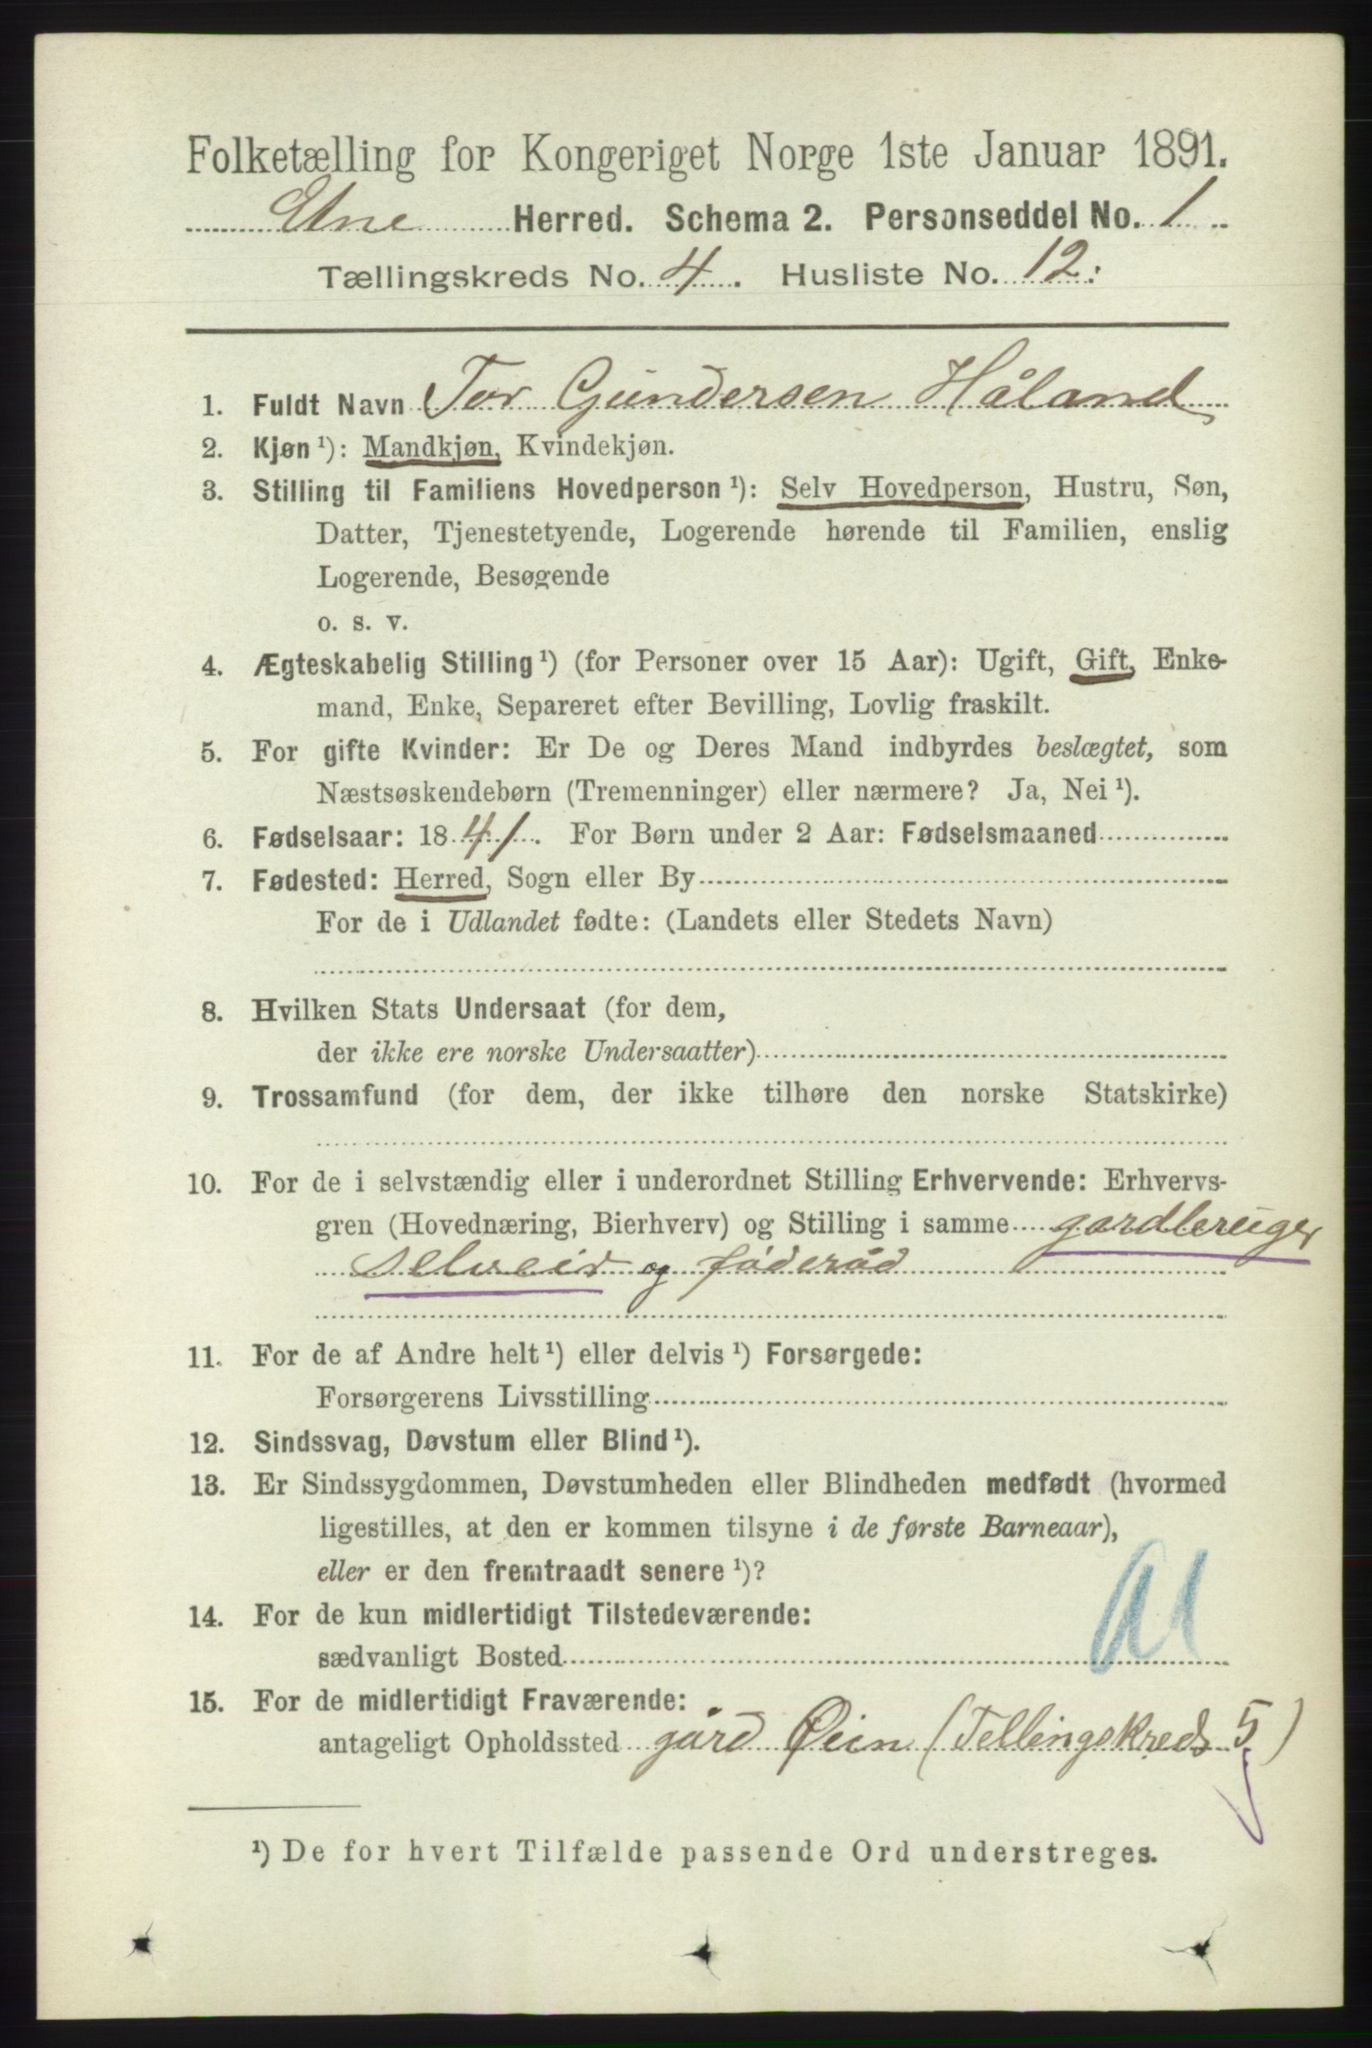 Folketælling for Kongeriget Norge 1ste Januar 1891.
Etne Herred. Schema 2. Personseddel No. 1
Tællingskreds No. 4. Husliste No. 12.
1. Fuldt Navn Tor Gundersen Håland
2. Kjøn ¹): Mandkjøn, Kvindekjøn.
3. Stilling til Familiens Hovedperson ¹): Selv Hovedperson, Hustru, Søn,
Datter, Tjenestetyende, Logerende hørende til Familien, enslig
Logerende, Besøgende
o. s. v.
4. Ægteskabelig Stilling ¹) (for Personer over 15 Aar): Ugift, Gift, Enke-
mand, Enke, Separeret efter Bevilling, Lovlig fraskilt.
5. For gifte Kvinder: Er De og Deres Mand indbyrdes beslægtet, som
Næstsøskendebørn (Tremenninger) eller nærmere? Ja, Nei ¹).
6. Fødselsaar: 1841. For Børn under 2 Aar: Fødselsmaaned
7. Fødested: Herred, Sogn eller By
For de i Udlandet fødte: (Landets eller Stedets Navn)
8. Hvilken Stats Undersaat (for dem,
der ikke ere norske Undersaatter)
9. Trossamfund (for dem, der ikke tilhøre den norske Statskirke)
10. For de i selvstændig eller i underordnet Stilling Erhvervende: Erhvervs-
gren (Hovednæring, Bierhverv) og Stilling i samme gardbruger
selveir og föderåd
11. For de af Andre helt ¹) eller delvis ¹) Forsørgede:
Forsørgerens Livsstilling
12. Sindssvag, Døvstum eller Blind ¹).
13. Er Sindssygdommen, Døvstumheden eller Blindheden medfødt (hvormed
ligestilles, at den er kommen tilsyne i de første Barneaar),
eller er den fremtraadt senere ¹)?
14. For de kun midlertidigt Tilstedeværende:
sædvanligt Bosted
15. For de midlertidigt Fraværende:
antageligt Opholdssted gård Øien (Tellingskreds 5)
¹) De for hvert Tilfælde passende Ord understreges.